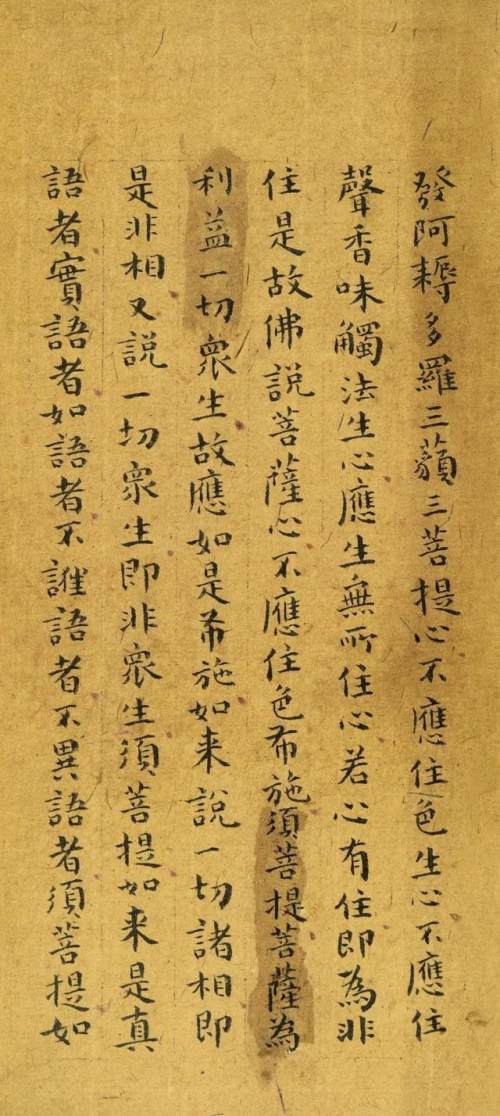 發阿耨多羅三藐三菩提心不應住色生心不應住
聲香味觸法生心應生無所住心若心有住即為非
住是故佛說菩薩心不應住色布施須菩提菩薩為
利益一切眾生故應如是布施如来說一切諸相即
是非相又說一切眾生即非眾生須菩提如来是真
語者實語者如語者不誑語者不異語者須菩提如